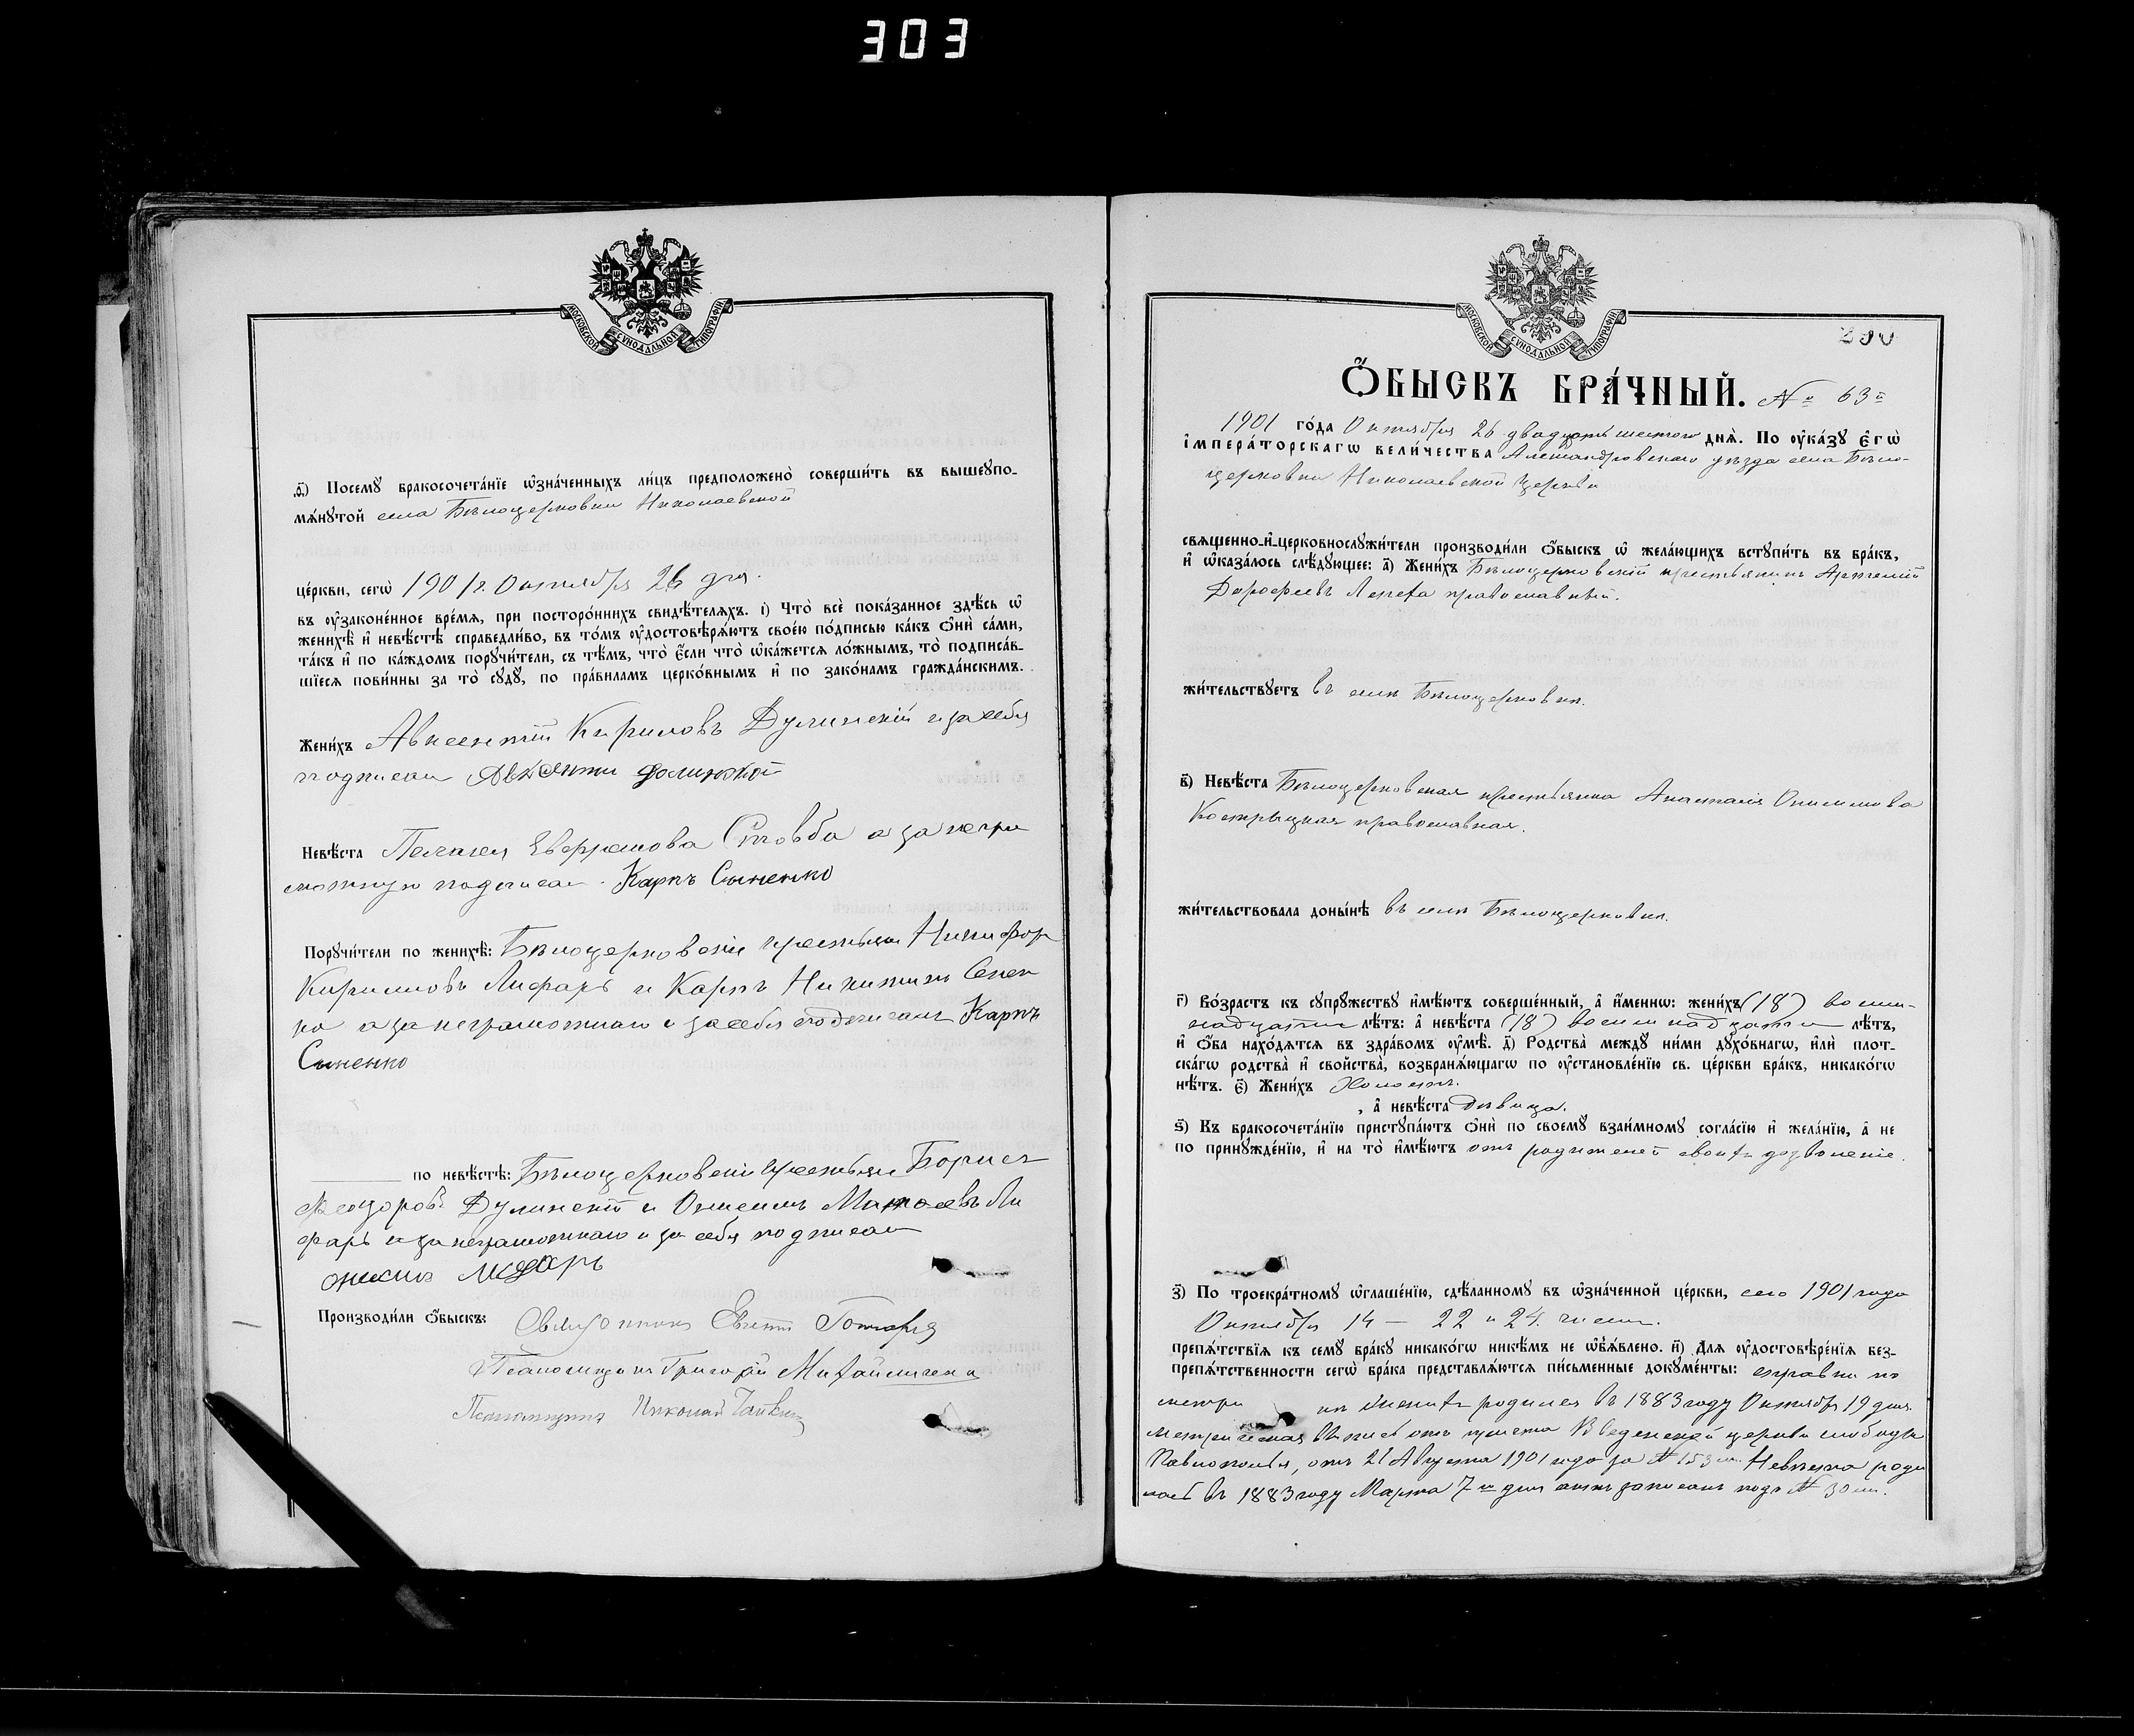 303
МОСКОВСКОЙ СѴНОДАЛЬНОЙ ТИПОГРАФІИ
ѳ҃) Посемꙋ бракосочета́нїе ѡ҆зна́ченныхъ ли́цъ предположено̀ соверши́ть въ вышеꙋпо-
мѧ́нꙋтой села Бѣлоцерковки Николаевской
це́ркви, сегѡ̀ 1901 г. Октября 26 дня.
въ ᲂу҆зако́ненное вре́мѧ, при посторо́ннихъ свидѣ́телѧхъ. і҃) Что̀ всѐ пока́занное здѣ́сь ѡ҆
женихѣ̀ и҆ невѣ́стѣ справедли́во, въ то́мъ ᲂу҆достовѣрѧ́ютъ свое́ю по́дписью ка́къ ѻ҆нѝ са́ми,
та́къ и҆ по ка́ждомъ порꙋчи́тели, съ тѣ́мъ, что̀ є҆́сли что̀ ѡ҆ка́жетсѧ ло́жнымъ, то̀ подписа́в-
шїесѧ пови́нны за то̀ сꙋдꙋ̀, по пра́виламъ церко́внымъ и҆ по зако́намъ гражда́нскимъ.
Жени́хъ Авксентій Кириловъ Дулинскій и за себя
подписалъ Авксенти
Невѣ́ста Пелагея Стовба а за негра
мотную подписалъ Карпъ Сыненко
Порꙋчи́тели по женихѣ̀: Бѣлоцерковскіе крестьяне Никифоръ
Кириловъ Лифарь и Карпъ Никитинъ Сенен
ко а за неграмотнаго и за себя подписалъ Карпъ
Сыненко
по невѣ́стѣ: Бѣлоцерковскіе крестьяне Борисъ
Феодоровъ Дулинскій и Онисимъ Матвеевъ Ли
фарь и за неграмотнаго и за себя подписалъ
Производи́ли ѻ҆́быскъ: Священникъ Евгеній
Псаломщикъ Григорій
Псаломщикъ Николай
МОСКОВСКОЙ СѴНОДАЛЬНОЙ ТИПОГРАФІИ
Ѻ҆́БЫСКЪ БРА́ЧНЫЙ. № 63й
1901 го́да Октября 26 двадцать шестого днѧ̀. По ᲂу҆ка́зꙋ є҆гѡ̀
і҆мпера́торскагѡ вели́чества Александровскаго уѣзда села Бѣло-
церковки Николаевской церкви
свѧщенно-и҆-церковнослꙋжи́тели производи́ли ѻ҆́быскъ ѡ҆ жела́ющихъ встꙋпи́ть въ бра́къ,
и҆ ѡ҆каза́лось слѣ́дꙋющее: а҃) Жени́хъ Бѣлоцерковскій крестьянинъ
Дорофеевъ Лепеха православный.
жи́тельствꙋетъ въ селѣ Бѣлоцерковкѣ.
в҃) Невѣ́ста Бѣлоцерковская крестьянка Анастасія Онисимова
Кострыцкая православная.
жи́тельствовала доны́нѣ въ селѣ Бѣлоцерковкѣ.
г҃) Во́зрастъ къ сꙋпрꙋ́жествꙋ и҆мѣ́ютъ соверше́нный, а҆ и҆́менно: жени́хъ (18) восем-
надцати лѣ́тъ: а҆ невѣ́ста (18) восемнадцати лѣ́тъ,
и҆ ѻ҆́ба нахо́дѧтсѧ въ здра́вомъ ᲂу҆мѣ̀. д҃) Родства̀ междꙋ ни́ми дꙋхо́внагѡ, и҆лѝ плот-
ска́гѡ родства̀ и҆ свойства̀, возбранѧ́ющагѡ по ᲂу҆становле́нїю св. це́ркви бра́къ, никако́гѡ
нѣ́тъ. є҃) Жени́хъ Холостъ.
, а҆ невѣ́ста Дѣвица.
ѕ҃) Къ бракосочета́нїю пристꙋпа́ютъ ѻ҆нѝ по своемꙋ̀ взаи́мномꙋ согла́сїю и҆ жела́нїю, а҆ не
по принꙋжде́нїю, и҆ на то̀ и҆мѣ́ютъ отъ родителей своихъ дозволеніе.
з҃) По троекра́тномꙋ ѡ҆глаше́нїю, сдѣ́ланномꙋ въ ѡ҆зна́ченной це́ркви, сего 1901 года
Октября 14 — 22 и 24 числа.
препѧ́тствїѧ къ семꙋ̀ бра́кꙋ никако́гѡ никѣ́мъ не ѡ҆б̾ѧ́влено. и҃) Для ᲂу҆достовѣре́нїѧ без-
препѧ́тственности сегѡ̀ бра́ка представлѧ́ютсѧ пи́сьменные докꙋме́нты: справка по
метри кѣ Женихъ родился въ 1883 году Октября 19 дня.
метрическая выпись отъ причта Введенской церкви слободы
Павлополья, отъ 21 Августа 1901 года за № 153 мъ. Невѣста роди
лась въ 1883 году Марта 7го дня актъ записанъ подъ № 30 мъ.